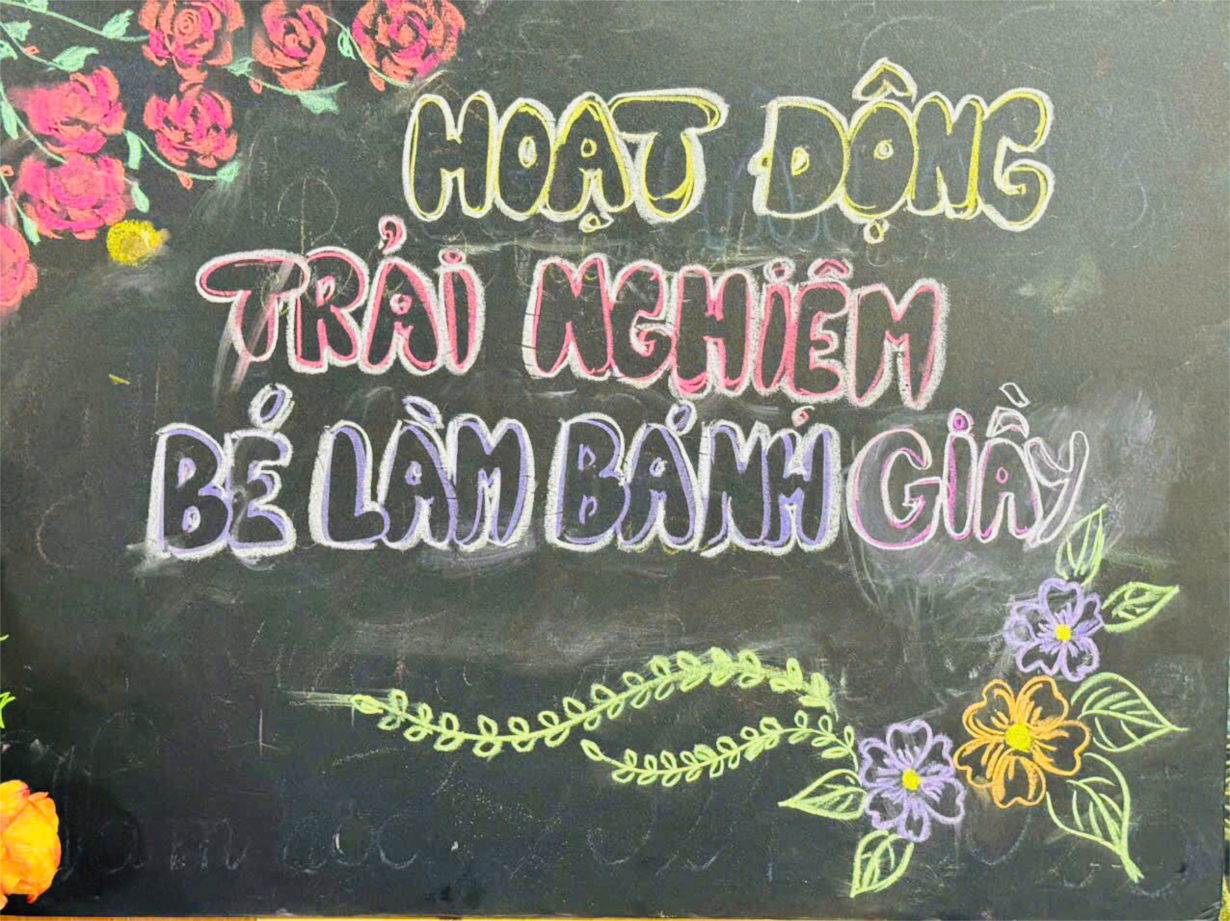 HOẠT ĐỘNG
TRẢI NGHIỆM
BÉ LÀM BÁNH GIẦY